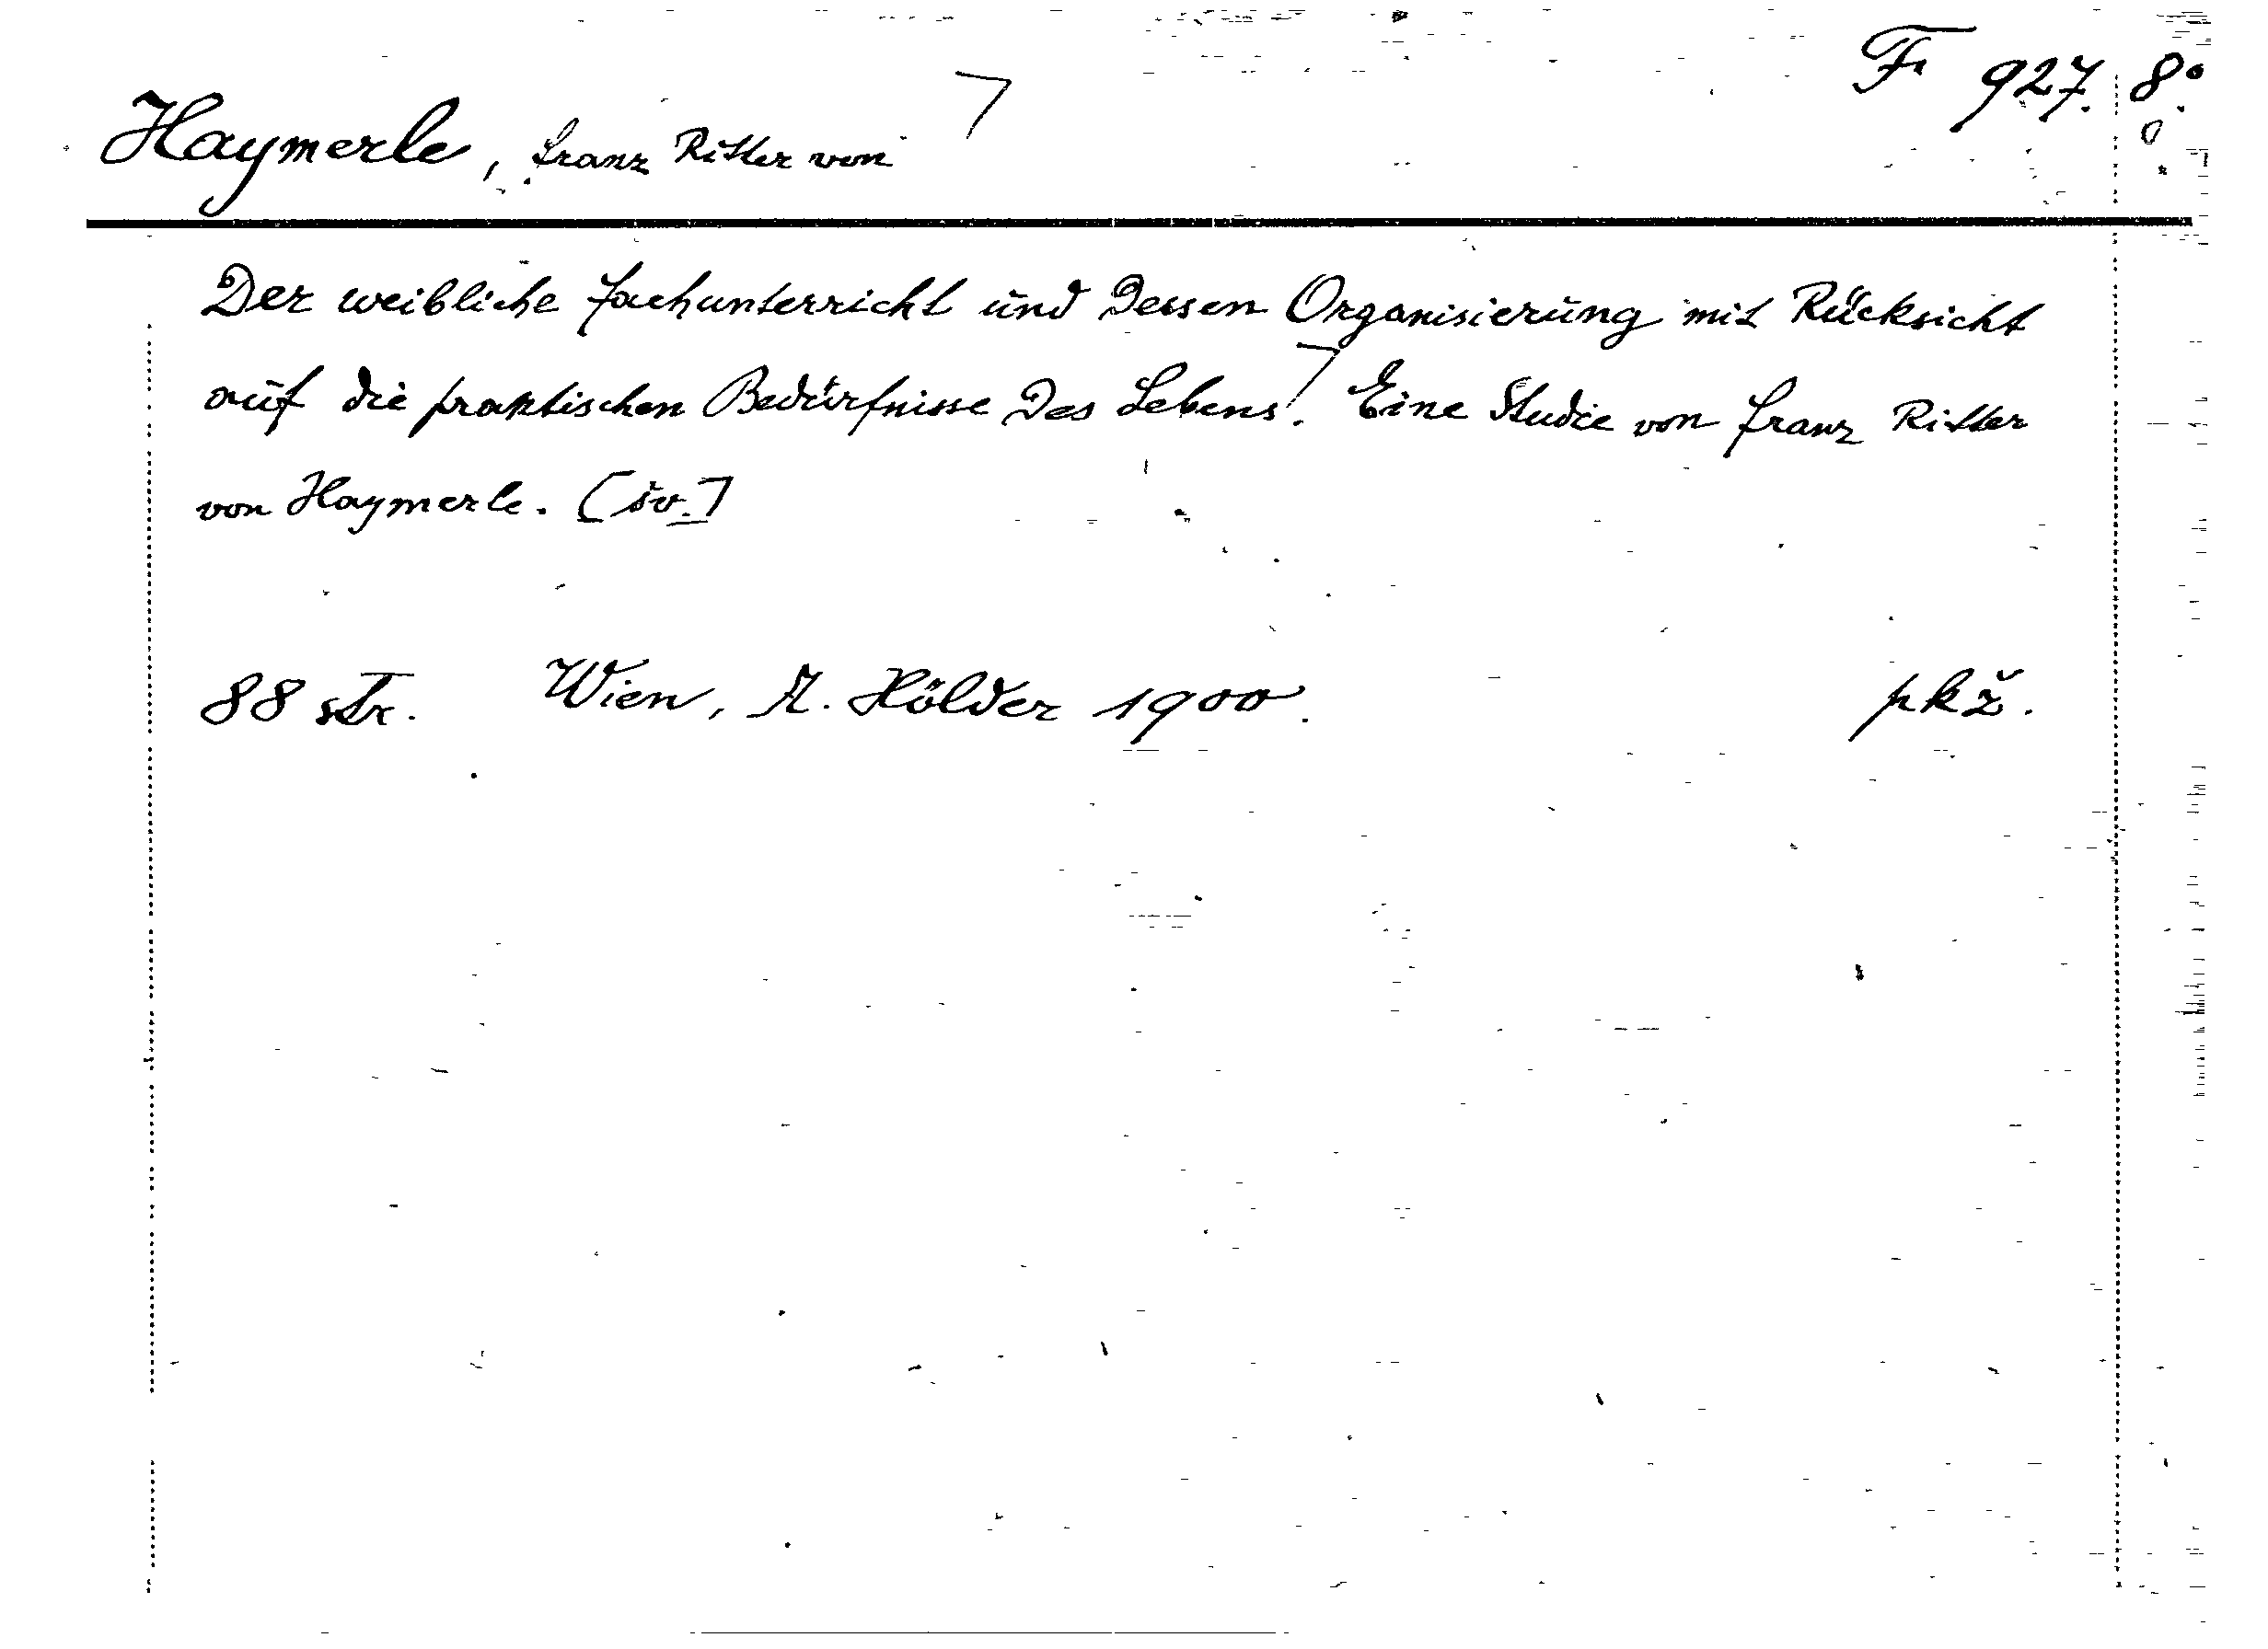 F 927. 8°.
Haymerle, Franz Ritter von
Der weibliche Fachunterricht und dessen Organisierung mit Rücksicht
auf die praktischen Bedürfnisse des Lebens. Eine Studie von Franz Ritter
von Haymerle. [sv.]
88 str. Wien, A. Hölder 1900. pkž.